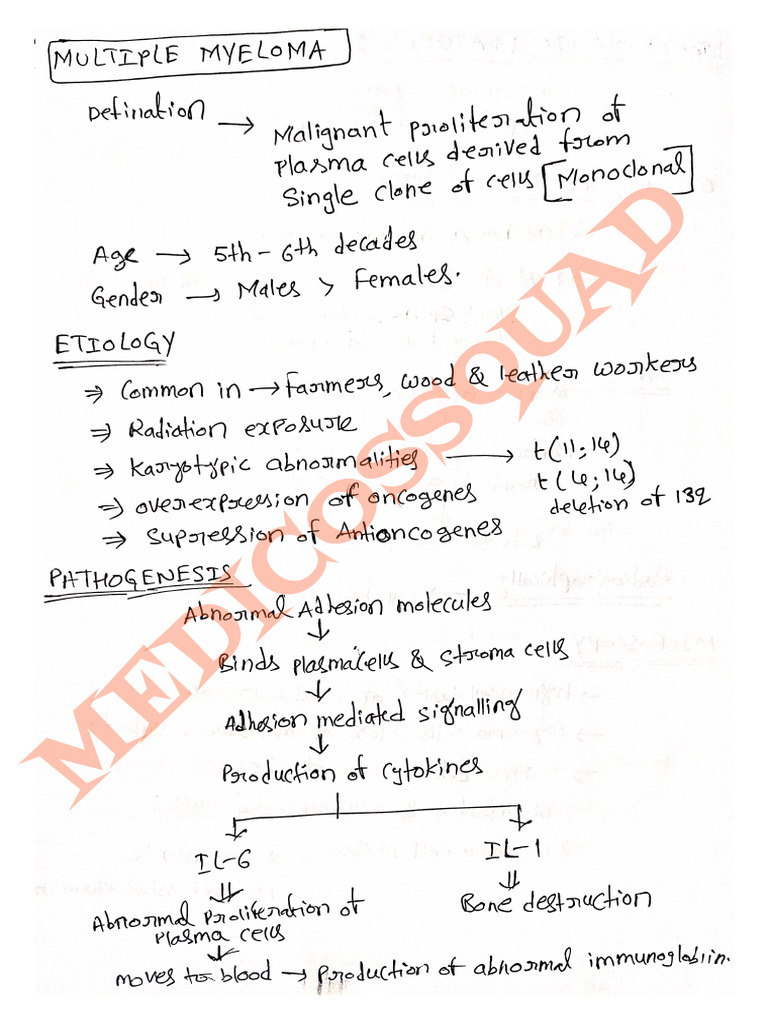 MULTIPLE MYELOMA
Defination → Malignant proliferation of
plasma cells derived from
Single clone of cells [Monoclonal]
Age → 5th - 6th decades
Gender → Males > Females.
ETIOLOGY
⇒ Common in → Farmers, wood & leather workers
⇒ Radiation exposure
⇒ Karyotypic abnormalities → t(11;14)
t(4;14)
deletion of 13q
⇒ overexpression of oncogenes
⇒ Supression of Antioncogenes
PATHOGENESIS
Abnormal Adhesion molecules
↓
Binds plasmacells & stroma cells
↓
Adhesion mediated signalling
↓
Production of cytokines
IL-6
IL-1
⇓
⇓
Abnormal proliferation of
plasma cells
Bone destruction
↓
moves to blood → production of abnormal immunoglobiin.
MEDICOSSQUAD